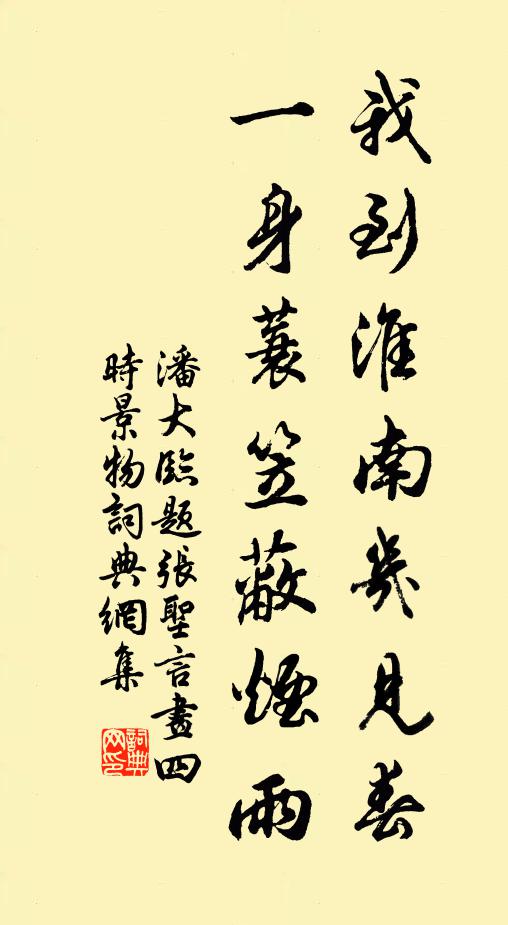 我到淮南幾見春
一身蓑笠蔽煙雨
潘大臨題張聖言畫四
時景物詞典網集
詞典
网印